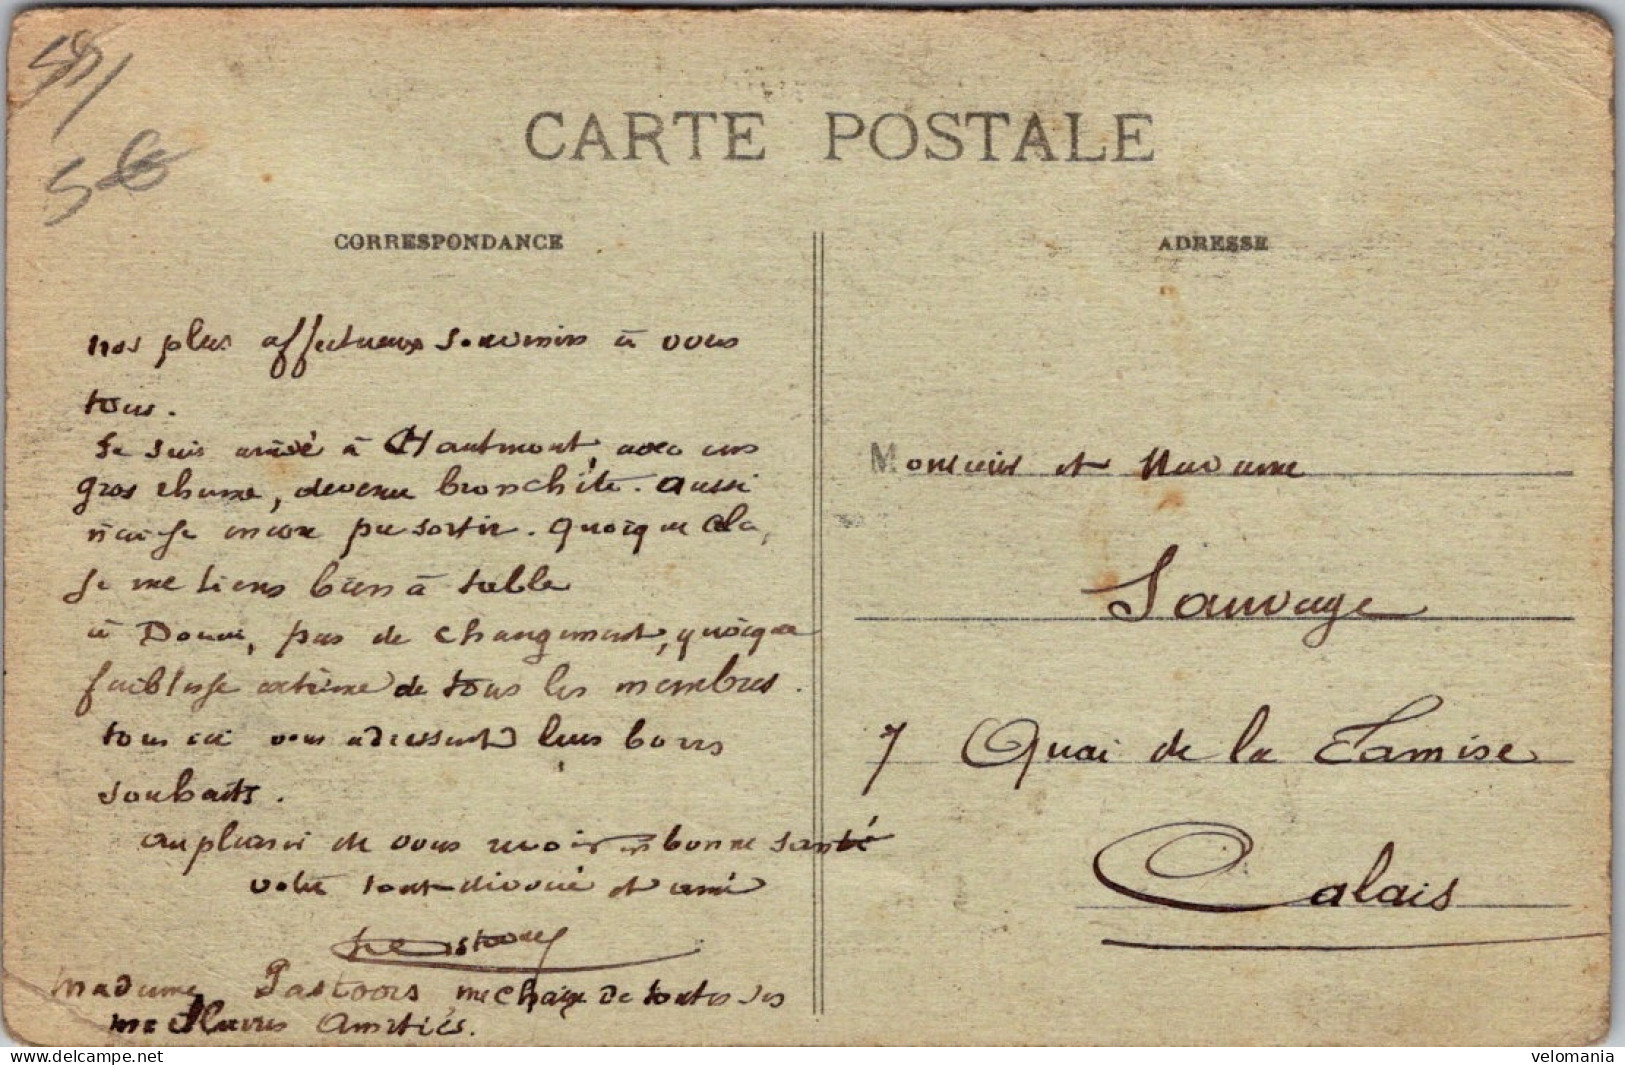 59/
5€
CARTE POSTALE
CORRESPONDANCE
nos plus affectueux souvenirs à vous
tous.
Je suis arrivé à Hautmont, avec un
gros rhume, devenu bronchite. Aussi
n'ai-je encore pu sortir. quoique cela,
je me tiens bien à table
à Douai, pas de changement, quoique
faiblesse extrême de tous les membres.
tous ici vous adressent leurs bons
souhaits.
au plaisir de vous revoir en bonne santé
votre tout dévoué et ami
madame Pastoors me charge de toutes ses
meilleures Amitiés.
ADRESSE
Monsieur et Madame
Sauvage
7 Quai de la Tamise
Calais
www.delcampe.net
velomania